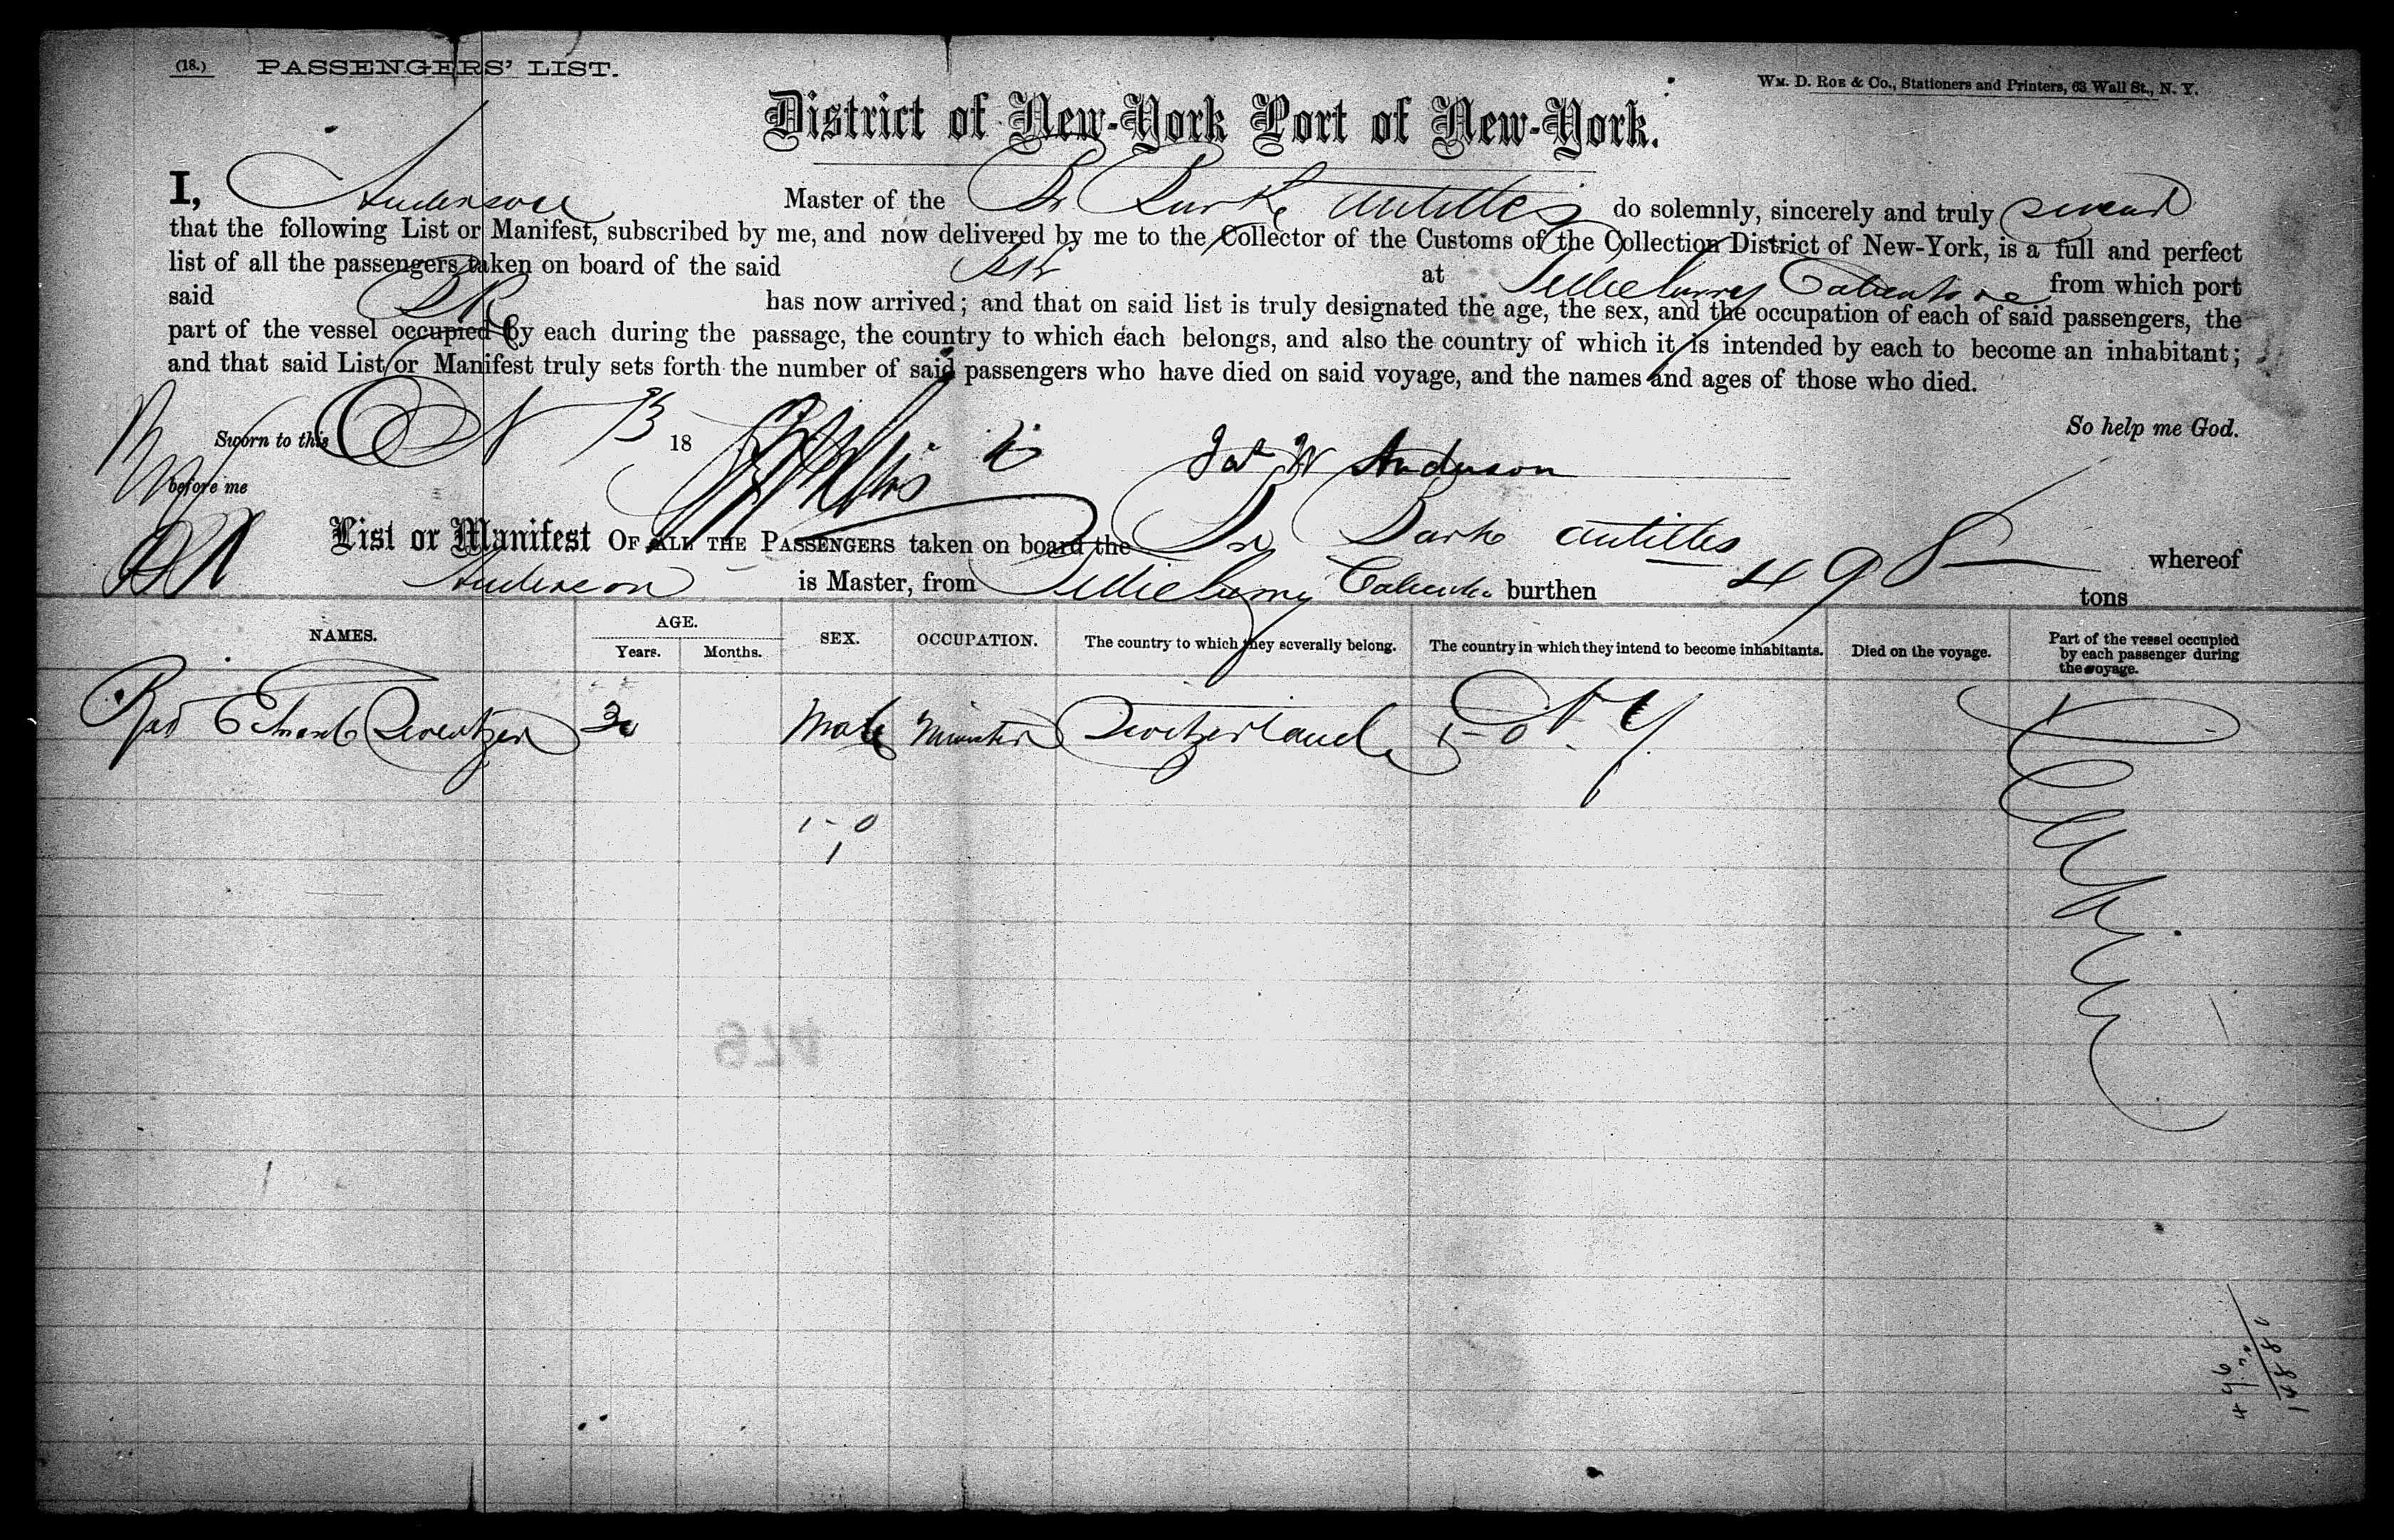 (18.) PASSENGERS' LIST.
WM. D. ROE & CO., Stationers and Printers, 63 Wall St., N. Y.
District of New-York Port of New-York.
I, Anderson Master of the Br Bark Antilles do solemnly, sincerely and truly swear
that the following List or Manifest, subscribed by me, and now delivered by me to the Collector of the Customs of the Collection District of New-York, is a full and perfect
list of all the passengers taken on board of the said Bk at from which port
said Bk has now arrived; and that on said list is truly designated the age, the sex, and the occupation of each of said passengers, the
part of the vessel occupied by each during the passage, the country to which each belongs, and also the country of which it is intended by each to become an inhabitant;
and that said List or Manifest truly sets forth the number of said passengers who have died on said voyage, and the names and ages of those who died.
So help me God.
Sworn to this 18
Jas W Anderson
before me
List or Manifest OF ALL THE PASSENGERS taken on board the Br Bark Antilles whereof
Anderson is Master, from burthen 498 tons
NAMES.
AGE.
Years.
Months.
SEX.
OCCUPATION.
The country to which they severally belong.
The country in which they intend to become inhabitants.
Died on the voyage.
Part of the vessel occupied by each passenger during the voyage.
Male Minister Switzerland N Y Cabin
1 - 0
1
974